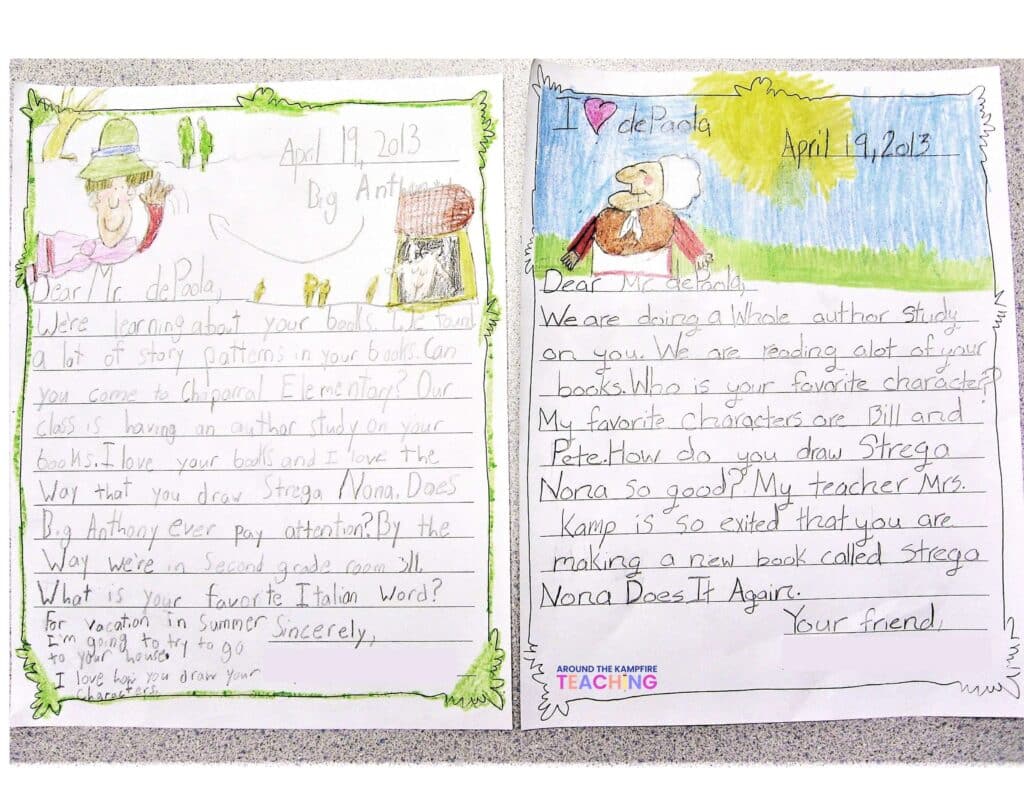 April 19, 2013
Big Anthony
Dear Mr. dePaola,
We're learning about your books. We found
a lot of story patterns in your books. Can
you come to Chaparral Elementary? Our
class is having an author study on your
books. I love your books and I love the
Way that you draw Strega Nona. Does
Big Anthony ever pay attention? By the
Way we're in Second grade room
What is your favorite Italian Word?
For vacation in Summer
I'm going to try to go
to your house.
I love how you draw your
characters.
Sincerely,
I ♥ dePaola
April 19, 2013
Dear Mr. dePaola,
We are doing a Whole author Study
on you. We are reading alot of your
books. Who is your favorite character?
My favorite characters are Bill and
Pete. How do you draw Strega
Nona so good? My teacher Mrs.
Kamp is so exited that you are
making a new book called Strega
Nona Does It Again.
Your friend,
AROUND THE KAMPFIRE
TEACHING